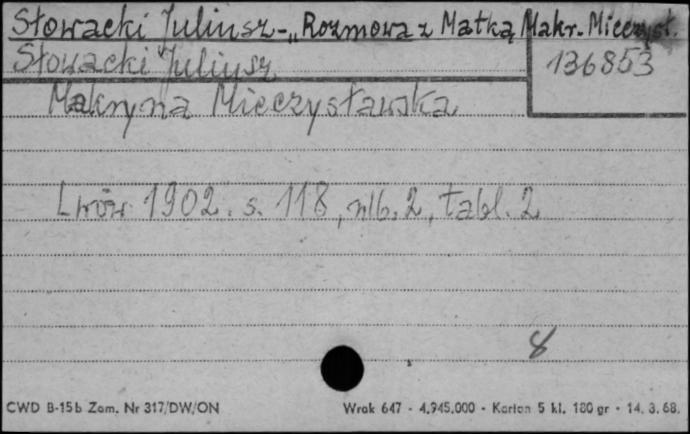 Słowacki Juliusz - „Rozmowa z Matką Makr. Mieczysł.
Słowacki Juliusz
136853
Makryna Mieczysławska
Lwów 1902. s. 118, nlb. 2, tabl. 2
8
CWD B-15b Zam. Nr 317/DW/ON Wrak 647 - 4.945.000 - Karton 5 kl. 180 gr - 14. 3. 68.